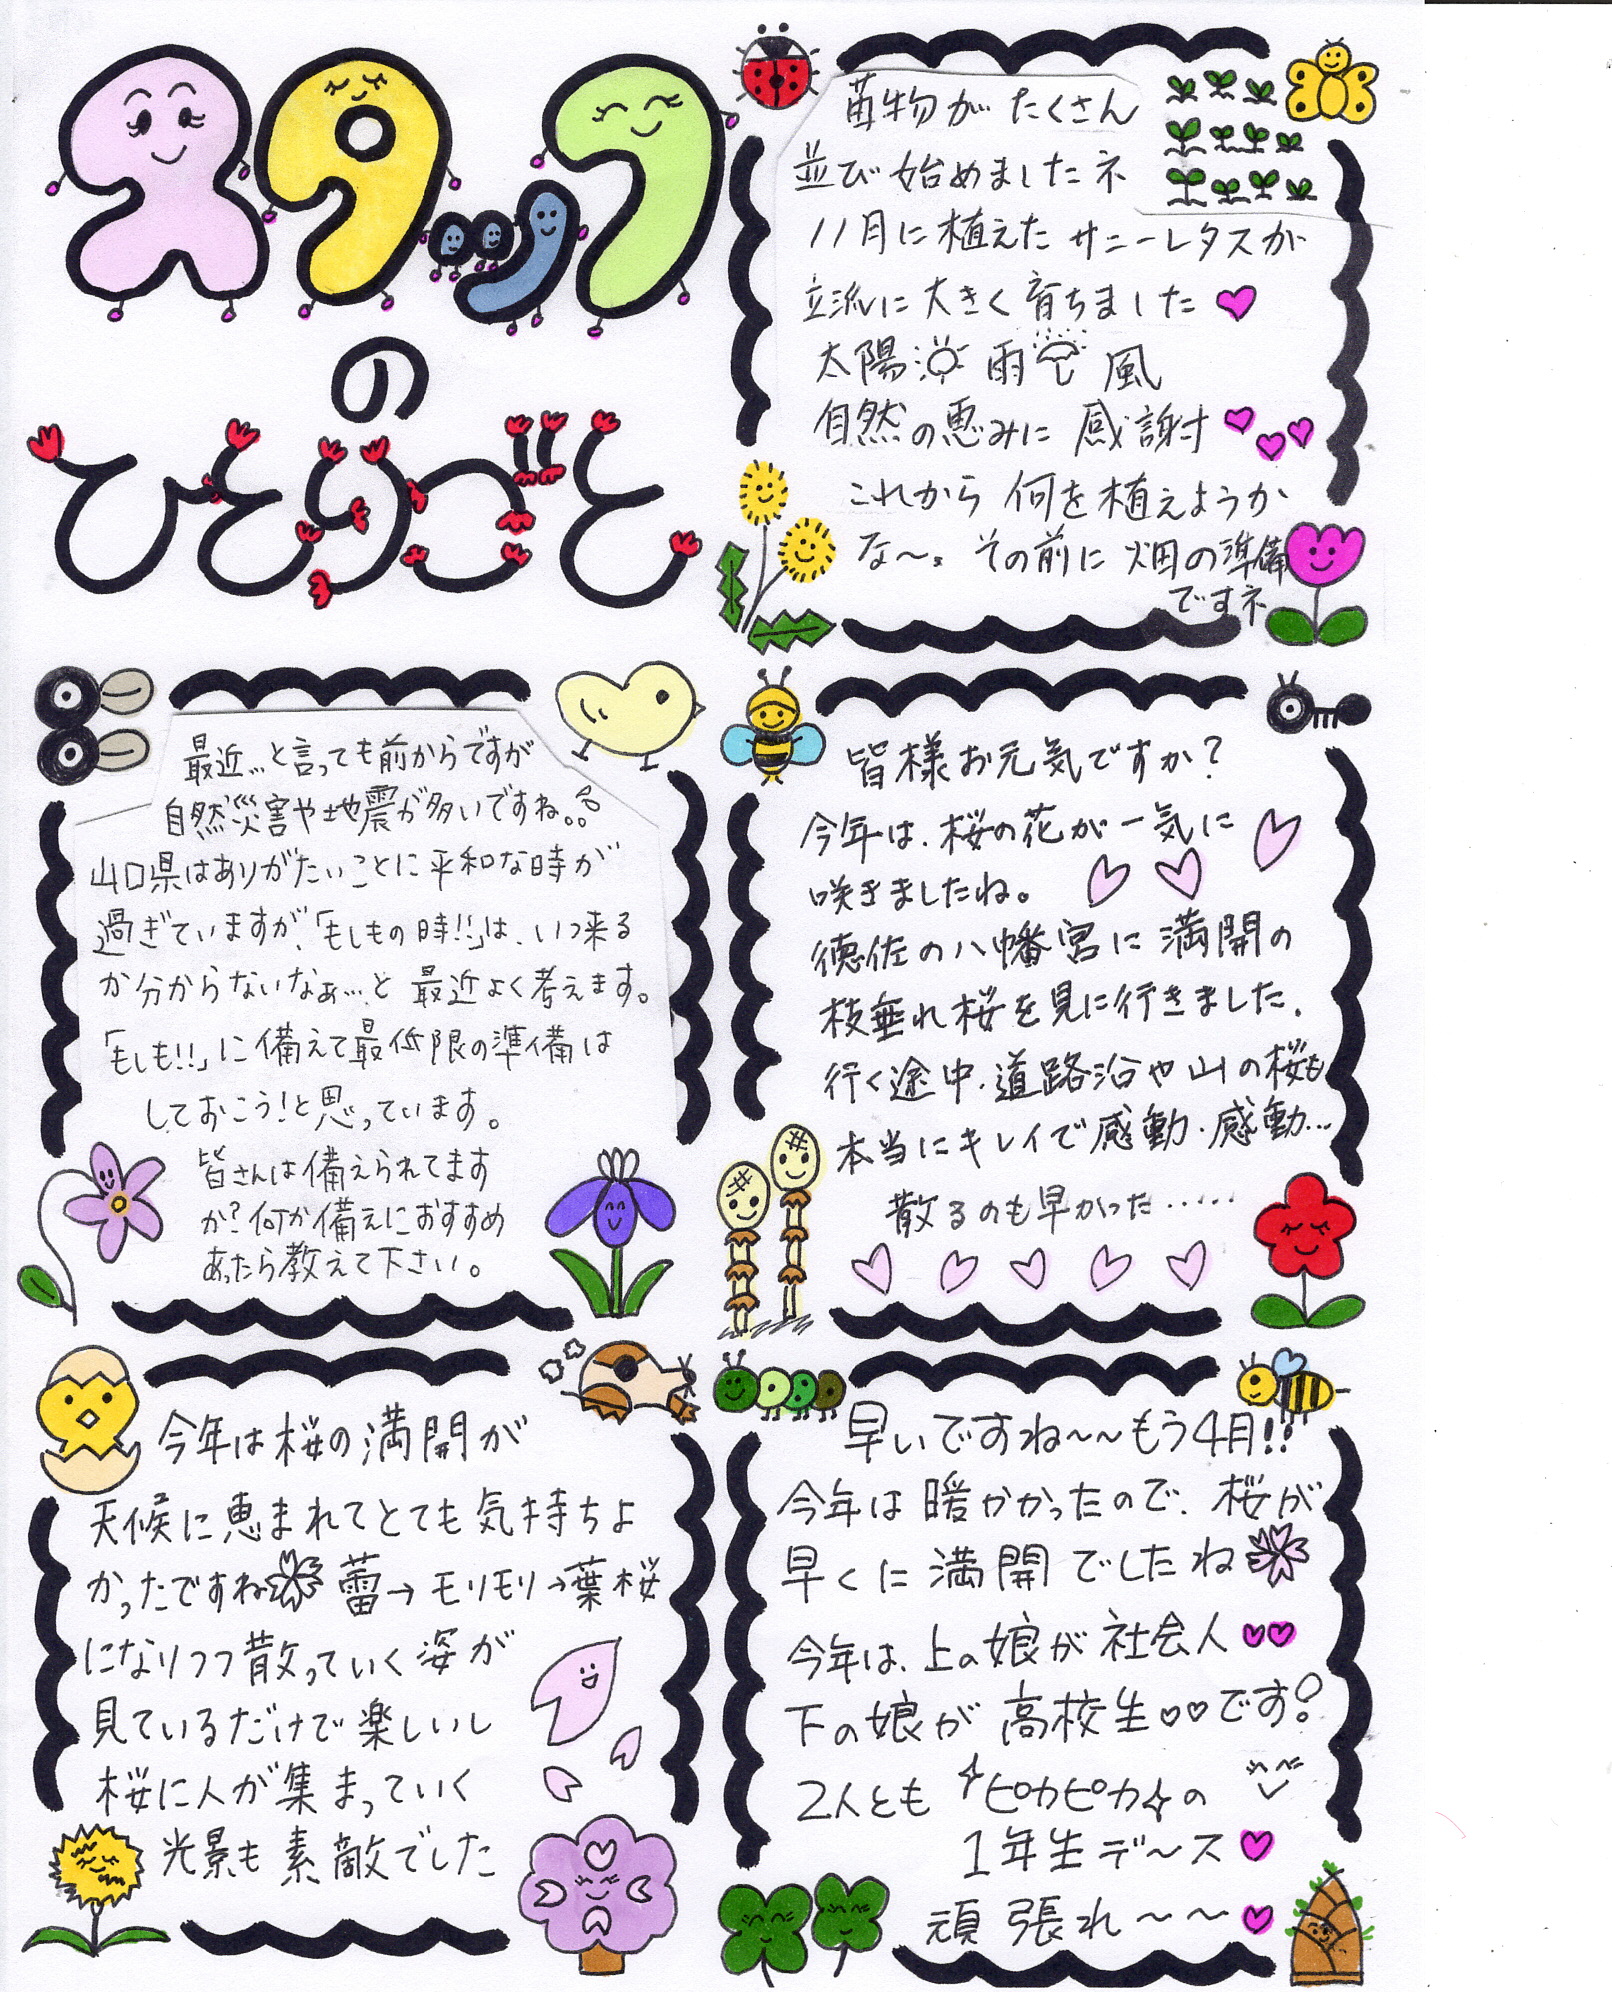 スタッフ
の
ひとりごと
苗物がたくさん
並び始めましたネ
11月に植えたサニーレタスが
立派に大きく育ちました
太陽 雨 風
自然の恵みに感謝
これから何を植えようか
な〜。その前に畑の準備
ですネ
最近…と言っても前からですが
自然災害や地震が多いですね。。
山口県はありがたいことに平和な時が
過ぎていますが、「もしもの時!!」は、いつ来る
か分からないなぁ…と最近よく考えます。
「もしも!!」に備えて最低限の準備は
しておこう!と思っています。
皆さんは備えられてます
か?何か備えにおすすめ
あったら教えて下さい。
皆様お元気ですか?
今年は、桜の花が一気に
咲きましたね。
徳佐の八幡宮に満開の
枝垂れ桜を見に行きました。
行く途中、道路沿や山の桜も
本当にキレイで感動、感動…
散るのも早かった……
今年は桜の満開が
天候に恵まれてとても気持ちよ
かったですね 蕾→モリモリ→葉桜
になりつつ散っていく姿が
見ているだけで楽しいし
桜に人が集まっていく
光景も素敵でした
早いですね〜〜もう4月!!
今年は暖かかったので、桜が
早くに満開でしたね
今年は、上の娘が社会人
下の娘が高校生♡♡です!
2人ともピカピカの
1年生デース
頑張れ〜〜